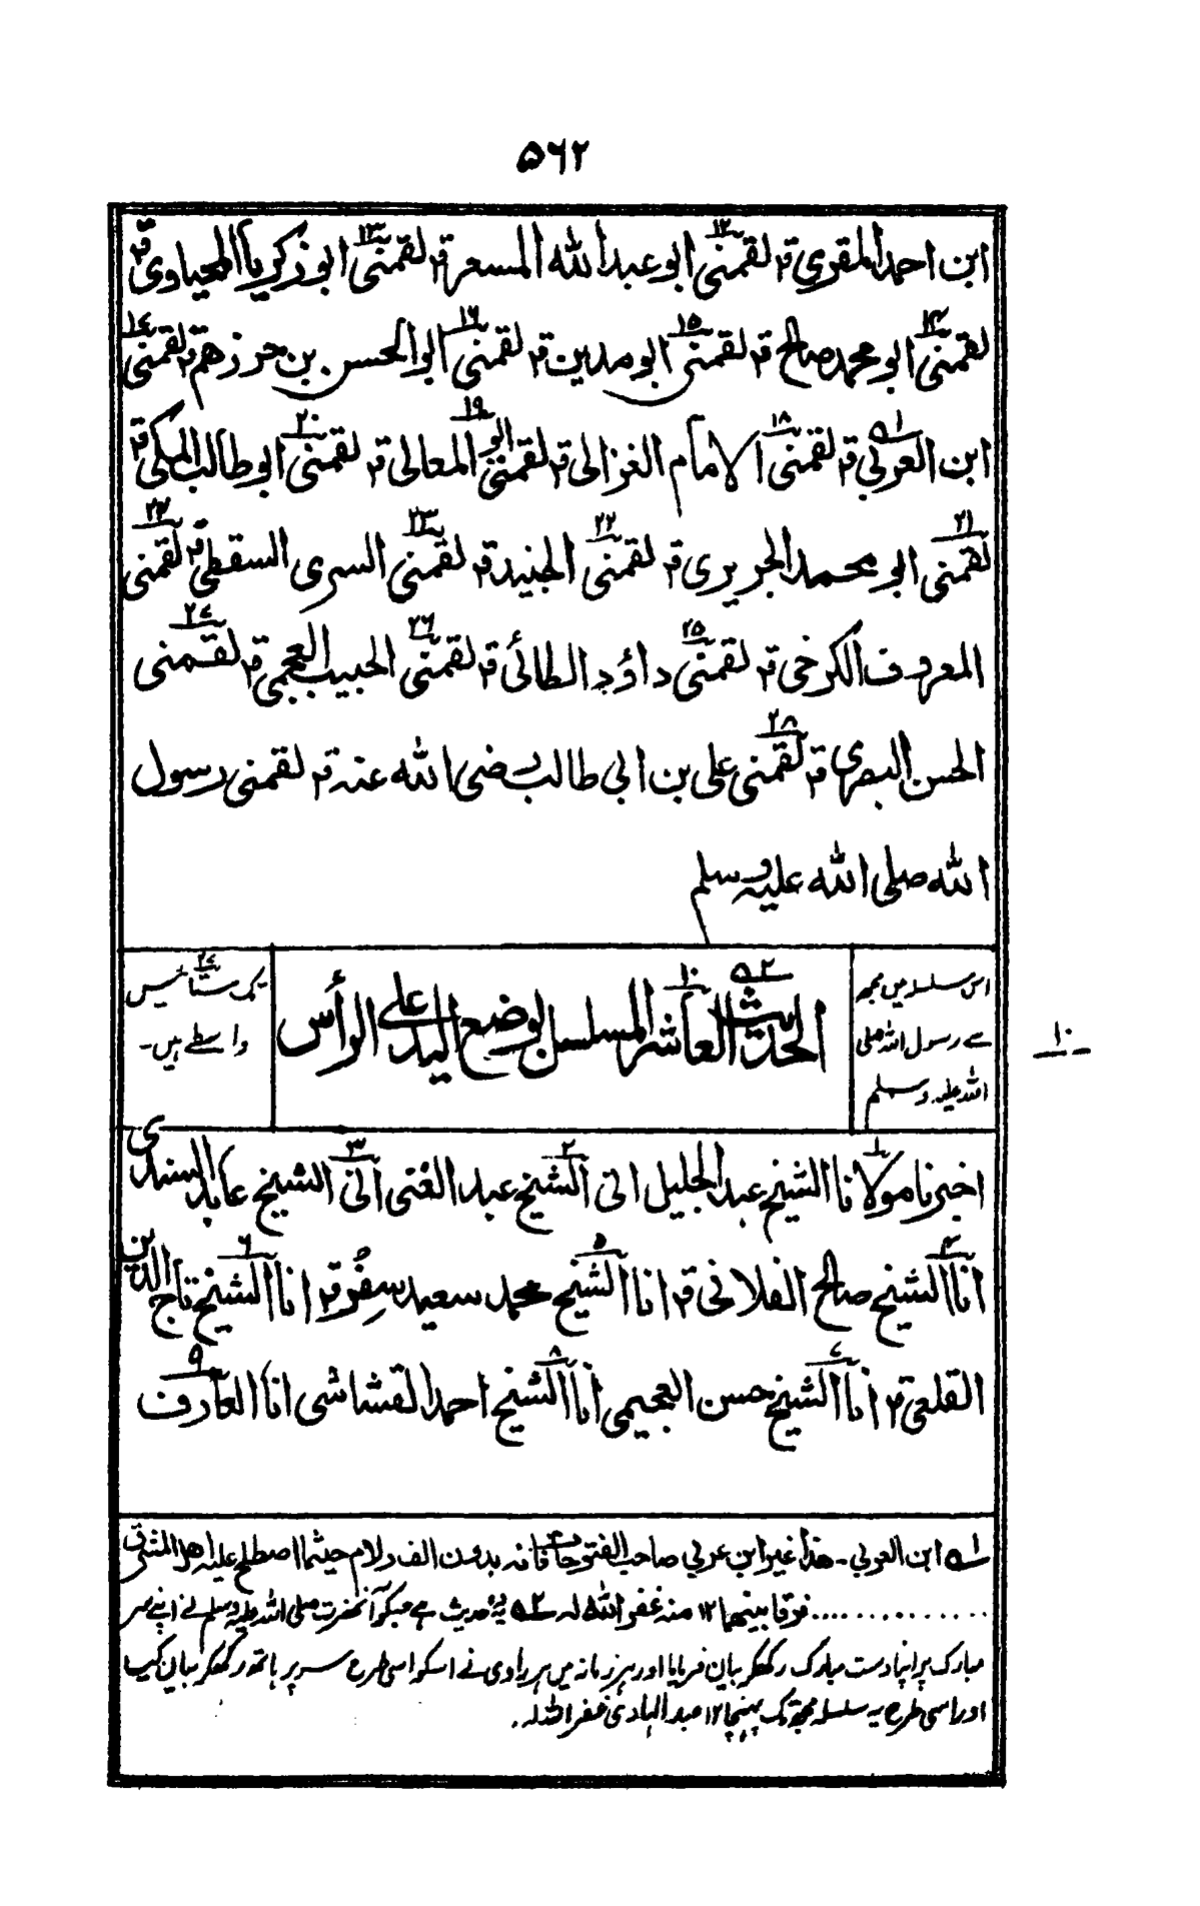 ۵۶۲
ابن احمد المقری قہ لقمنی ۱۲ ابو عبد اللہ المسعر قہ لقمنی ۱۳ ابو زکریا المحیاوی قہ
لقمنی ۱۴ ابو محمد صالح قہ لقمنی ۱۵ ابو مدین قہ لقمنی ۱۶ ابو الحسن بن حرزهم قہ لقمنی ۱۷
ابن العربی ۱ قہ لقمنی ۱۸ الامام الغزالی قہ لقمنی ۱۹ ابو المعالی قہ لقمنی ۲۰ ابو طالب المکی قہ
لقمنی ۲۱ ابو محمد الجریری قہ لقمنی ۲۲ الجنید قہ لقمنی ۲۳ السری السقطی قہ لقمنی ۲۴
المعروف الکرخی قہ لقمنی ۲۵ داؤد الطائی قہ لقمنی ۲۶ الحبیب العجمی قہ لقمنی ۲۷
الحسن البصری قہ لقمنی ۲۸ علی بن ابی طالب رضی اللہ عنہ قہ لقمنی رسول
اللہ صلی اللہ علیہ وسلم
اس سلسلہ میں مجھ
سے رسول اللہ صلی
اللہ علیہ وسلم
الحدیث ۲ العاشر ۱۰ المسلسل بوضع الید علی الرأس
تک ستائیس ۲۷
واسطے ہیں۔
۱۰
اخبرنا مولانا ۱ الشیخ عبد الجلیل انی الشیخ ۲ عبد الغنی انی ۳ الشیخ عابد السندی
انا الشیخ ۴ صالح الفلانی قہ انا الشیخ ۵ محمد سعید سفر قہ انا الشیخ ۶ تاج الدین
القلعی قہ انا الشیخ ۷ حسن العجیمی انا الشیخ ۸ احمد القشاشی انا العارف ۹
۱ ابن العربی۔ هذا غیر ابن عربی صاحب الفتوحات فانہ بدون الف ولام حیثما اصطلح علیہ اهل المشرق
............ فرقا بینهما ۱۲ منہ غفر اللہ لہ ۲ یہ وہ حدیث ہے جسکو آنحضرت صلی اللہ علیہ وسلم نے اپنے سر
مبارک پر اپنا دست مبارک رکھکر بیان فرمایا اور ہر زمانہ میں ہر راوی نے اسکو اسی طرح سر پر ہاتھ رکھکر بیان کیا
اور اسی طرح یہ سلسلہ مجھ تک پہنچا ۱۲ عبد الہادی غفر اللہ لہ.